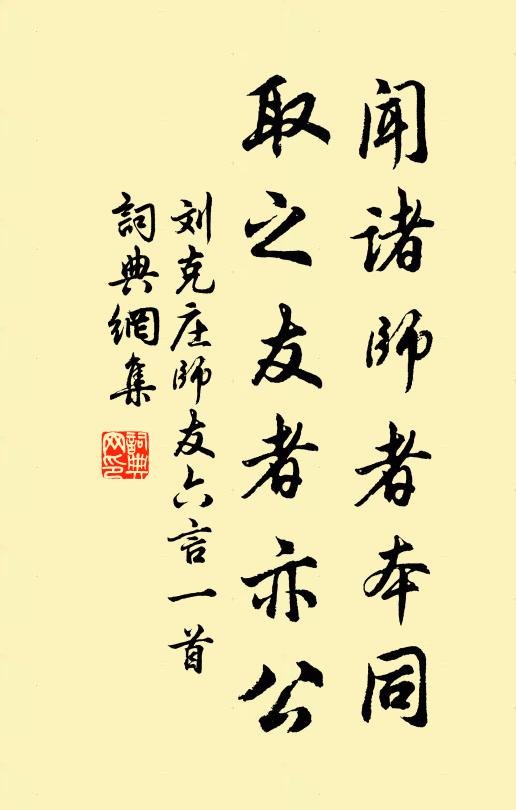 闻诸师者本同
取之友者亦公
刘克庄师友六言一首
詞典網集
詞典网印